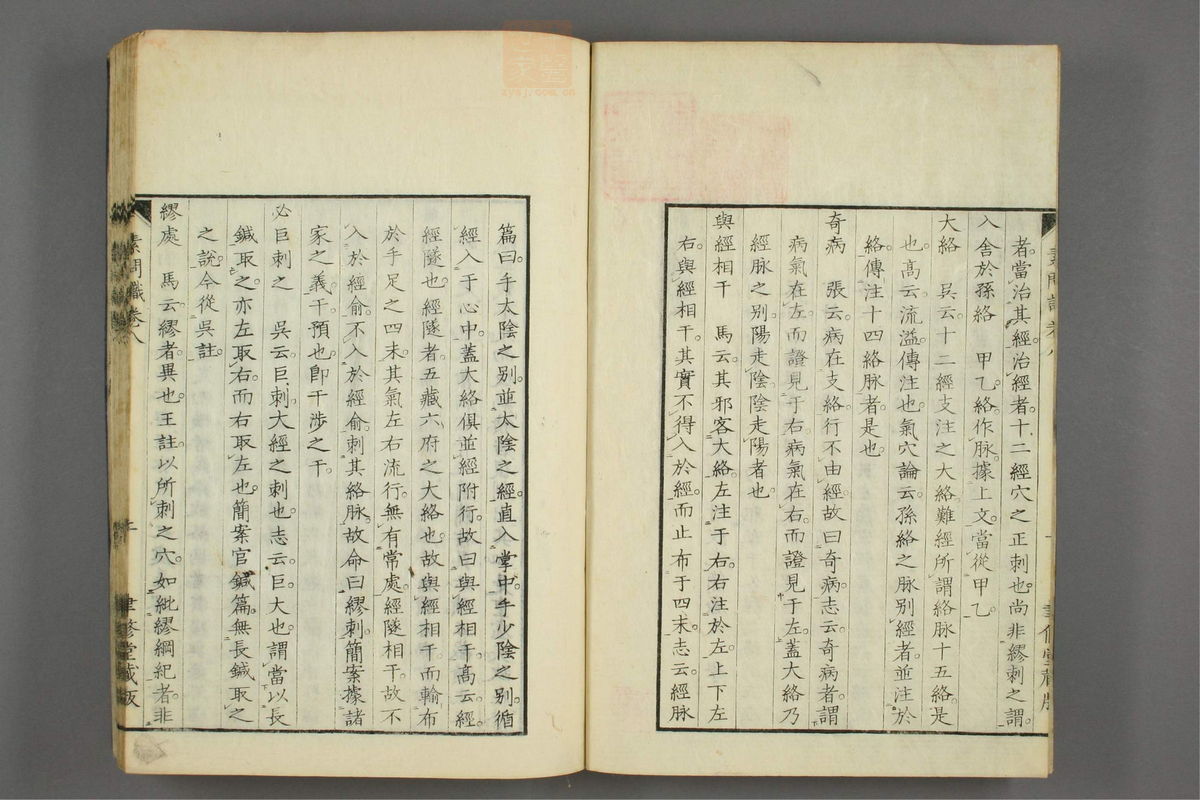 者當治其經治經者十二經穴之正刺也尚非繆刺之謂
入舍於孫絡 甲乙絡作脈據上文當從甲乙
大絡 吳云十二經支注之大絡難經所謂絡脈十五絡是
也高云流溢傳注也氣穴論云孫絡之脈別經者並注於
絡傳注十四絡脈者是也
奇病 張云病在支絡行不由經故曰奇病志云奇病者謂
病氣在左而證見于右病氣在右而證見于左蓋大絡乃
經脈之別陽走陰陰走陽者也
與經相干 馬云其邪客大絡左注于右右注於左上下左
右與經相干其實不得入於經而止布于四末志云經脈
篇曰手太陰之別並太陰之經直入掌中手少陰之別循
經入于心中蓋大絡俱並經附行故曰與經相干高云經
經隧也經隧者五藏六府之大絡也故與經相干而輸布
於手足之四末其氣左右流行無有常處經隧相干故不
入於經俞不入於經俞刺其絡脈故命曰繆刺簡案據諸
家之義干預也卽干涉之干
必巨刺之 吳云巨刺大經之刺也志云巨大也謂當以長
鍼取之亦左取右而右取左也簡案官鍼篇無長鍼取之
之說今從吳註
繆處 馬云繆者異也王註以所刺之穴如紕繆綱紀者非
素問識卷八
聿修堂藏版
zysj.com.cn